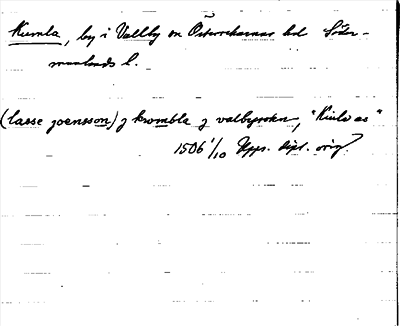 Kumla, by i Vallby sn Österrekarnes hd Söder-
manlands l.
(lasse joensson) j kwmbla j valbysokn,
1506 1/10 Upps. dipl. orig.